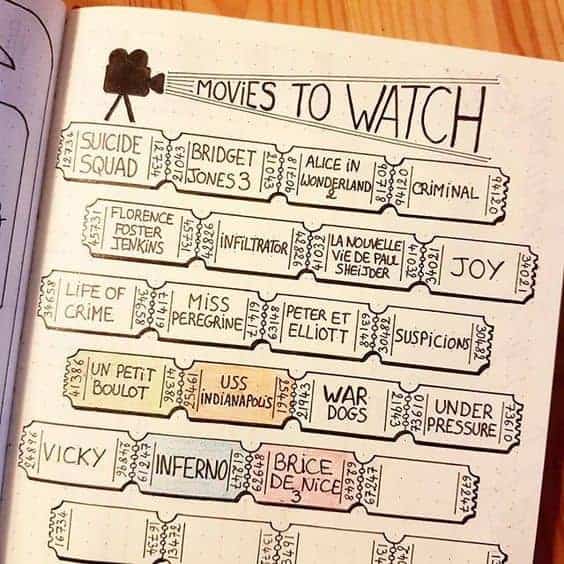 MOVIES TO WATCH
12734
SUICIDE
SQUAD
12734
21043
BRIDGET
JONES 3
21043
90718
ALICE IN
WONDERLAND
2
90718
94120
CRIMINAL
94120
45731
FLORENCE
FOSTER
JENKINS
45731
42826
INFILTRATOR
42826
41032
LA NOUVELLE
VIE DE PAUL
SHEIJDER
41032
34021
JOY
34021
34658
LIFE OF
CRIME
34658
61417
MISS
PEREGRINE
61417
63148
PETER ET
ELLIOTT
63148
30482
SUSPICIONS
30482
41386
UN PETIT
BOULOT
41386
25461
USS
INDIANAPOLIS
21943
WAR
DOGS
21943
73610
UNDER
PRESSURE
73610
VICKY
61247
INFERNO
61247
62648
BRICE
DE NICE
3
62648
67247
67247
16734
16734
13472